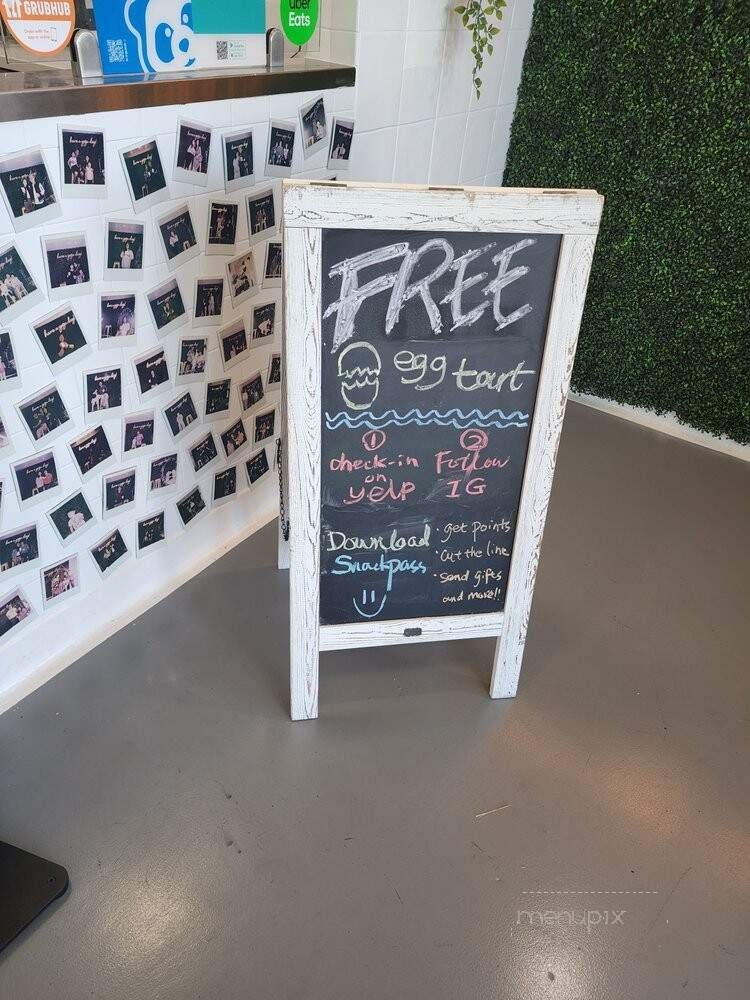 GRUBHUB
Uber
Eats
FREE
egg tart
① ②
check-in Follow
on
yelp IG
Download
Snackpass
· get points
· cut the line
· send gifts
and more!!
menupix